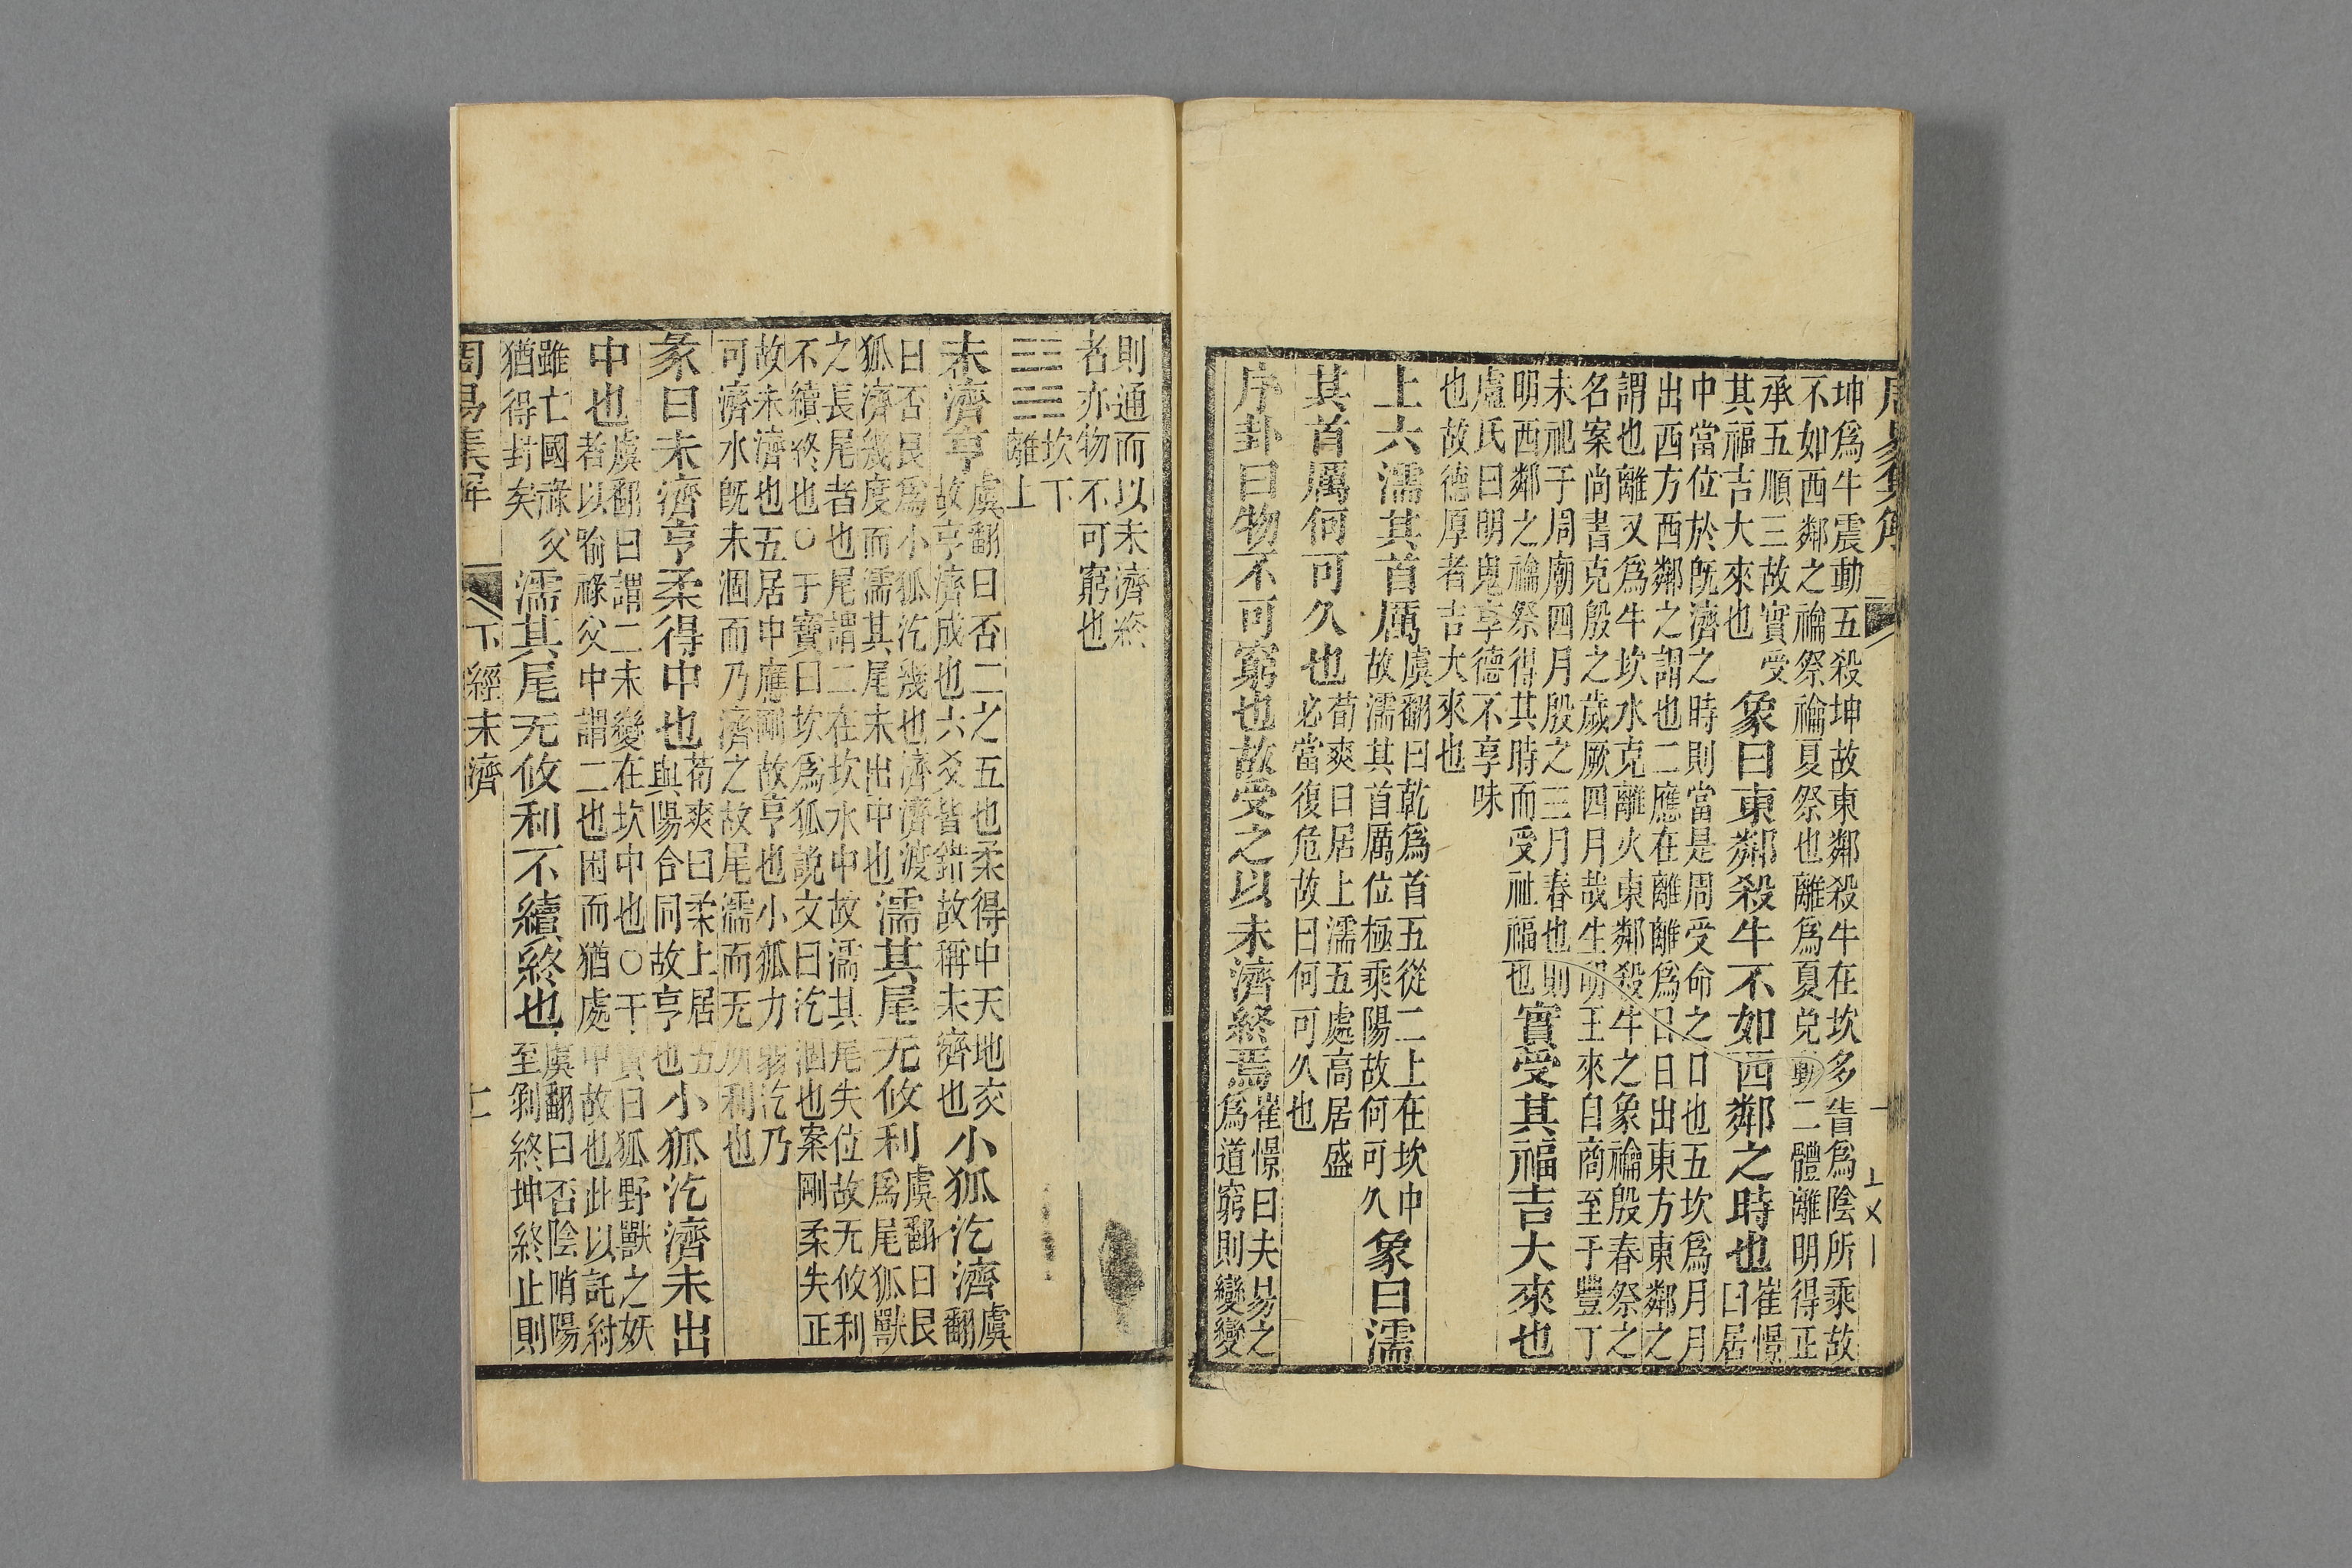 周易集解
坤爲牛震動五殺坤故東鄰殺牛在坎多眚爲陰所乘故
不如西鄰之禴祭禴夏祭也離爲夏兌動二體離明得正
承五順三故實受
其福吉大來也
象曰東鄰殺牛不如西鄰之時也
崔憬
曰居
中當位於旣濟之時則當是周受命之日也五坎爲月月
出西方西鄰之謂也二應在離離爲日日出東方東鄰之
謂也離又爲牛坎水克離火東鄰殺牛之象禴殷春祭之
名案尚書克殷之歲厥四月哉生明王來自商至于豐丁
未祀于周廟四月殷之三月春也則
明西鄰之禴祭得其時而受祉福也
實受其福吉大來也
盧氏曰明鬼享德不享味
也故德厚者吉大來也
上六濡其首厲
虞翻曰乾爲首五從二上在坎中
故濡其首厲位極乘陽故何可久
象曰濡
其首厲何可久也
荀爽曰居上濡五處高居盛
必當復危故曰何可久也
序卦曰物不可窮也故受之以未濟終焉
崔憬曰夫易之
爲道窮則變變
則通而以未濟終
者亦物不可窮也
坎下
離上
未濟亨
虞翻曰否二之五也柔得中天地交
故亨濟成也六爻皆錯故稱未濟也
小狐汔濟
虞
翻
曰否艮爲小狐汔幾也濟濟渡
狐濟幾度而濡其尾未出中也
濡其尾无攸利
虞翻曰艮
爲尾狐獸
之長尾者也尾謂二在坎水中故濡其尾失位故无攸利
不續終也○干寶曰坎爲狐說文曰汔涸也案剛柔失正
故未濟也五居中應剛故亨也小狐力弱汔乃
可濟水旣未涸而乃濟之故尾濡而无所利也
彖曰未濟亨柔得中也
荀爽曰柔上居五
與陽合同故亨也
小狐汔濟未出
中也
虞翻曰謂二未變在坎中也○干寶曰狐野獸之妖
者以喻祿父中謂二也困而猶處中故也此以託紂
雖亡國祿父
猶得封矣
濡其尾无攸利不續終也
虞翻曰否陰消陽
至剝終坤終止則
周易集解
下經未濟